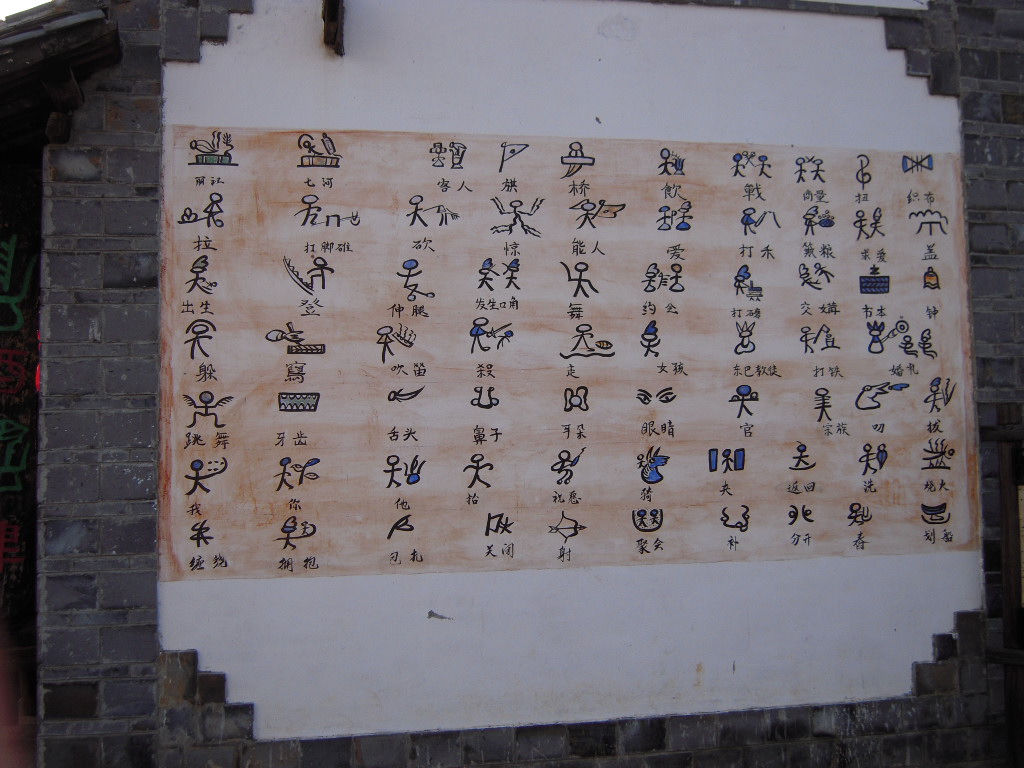 客人 旗 桥 飲 戰 商量 扭 织布
拉 打脚碓 砍 惊 能人 爱 打禾 煮粮 求爱 盖
出生 登 伸腿 发生口角 舞 约会 打碑 交媾 书本 钟
躲 寫 吹笛 殺 走 女孩 东巴教徒 打铁 婚礼
跳舞 牙齿 舌头 鼻子 耳朵 眼睛 官 宗族 叼 拔
我 你 他 抬 祝愿 猜 夹 返回 洗 烧火
缠绕 拥抱 包扎 关闭 射 聚会 补 分开 春 划船